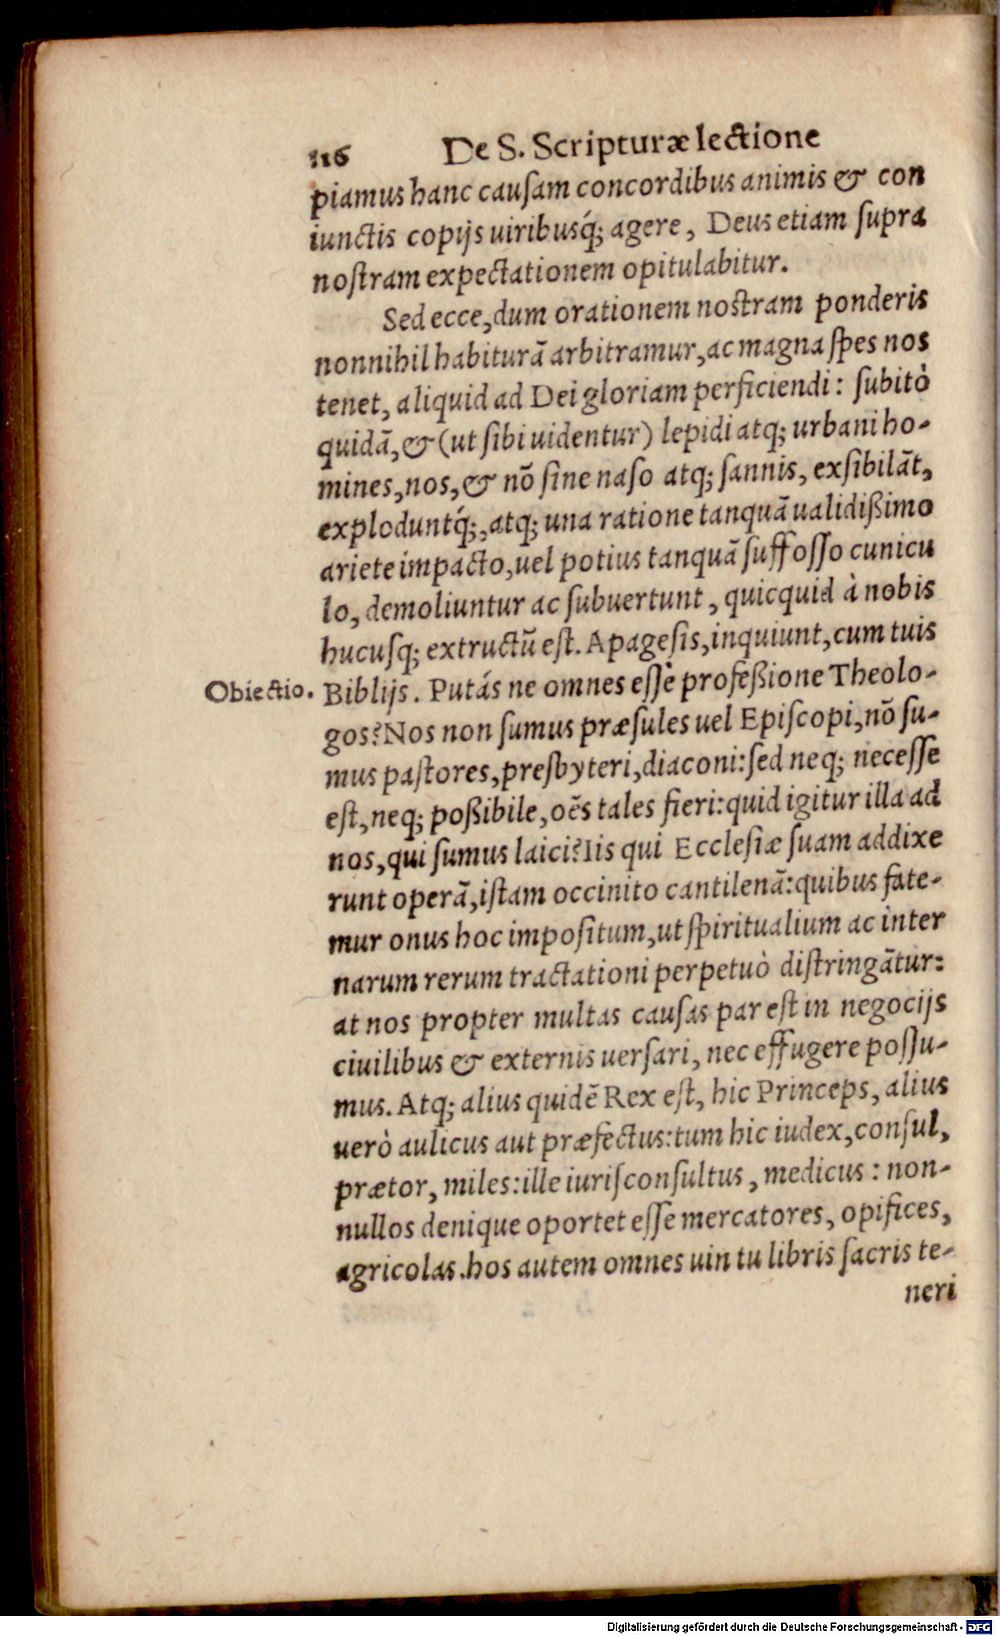 116 De S. Scripturæ lectione
piamus hanc causam concordibus animis & con
iunctis copijs uiribusq́; agere, Deus etiam supra
nostram expectationem opitulabitur.
Sed ecce, dum orationem nostram ponderis
nonnihil habiturā arbitramur, ac magna spes nos
tenet, aliquid ad Dei gloriam perficiendi: subitò
quidā, & (ut sibi uidentur) lepidi atq; urbani ho-
mines, nos, & nō sine naso atq; sannis, exsibilāt,
exploduntq́;, atq; una ratione tanquā ualidißimo
ariete impacto, uel potius tanquā suffosso cunicu
lo, demoliuntur ac subuertunt, quicquid à nobis
hucusq; extructū est. Apagesis, inquiunt, cum tuis
Obiectio. Biblijs. Putás ne omnes esse professione Theolo-
gos? Nos non sumus præsules uel Episcopi, nō su-
mus pastores, presbyteri, diaconi: sed neq; necesse
est, neq; poßibile, oēs tales fieri: quid igitur illa ad
nos, qui sumus laici? Iis qui Ecclesiæ suam addixe
runt operā, istam occinito cantilenā: quibus fate-
mur onus hoc impositum, ut spiritualium ac inter
narum rerum tractationi perpetuò distringātur:
at nos propter multas causas par est in negocijs
ciuilibus & externis uersari, nec effugere possu-
mus. Atq; alius quidē Rex est, hic Princeps, alius
uerò aulicus aut præfectus: tum hic iudex, consul,
prætor, miles: ille iurisconsultus, medicus: non-
nullos denique oportet esse mercatores, opifices,
agricolas. hos autem omnes uin tu libris sacris te-
neri
Digitalisierung gefördert durch die Deutsche Forschungsgemeinschaft - DFG